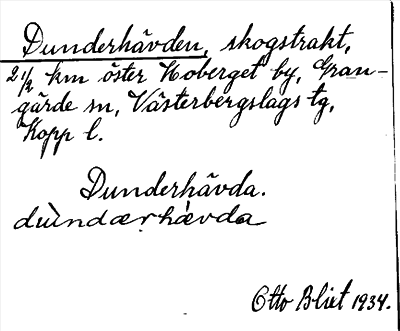 Dunderhävden, skogstrakt,
2 1/2 km öster Hoberget by, Gran-
gärde sn, Västerbergslags tg,
Kopp l.
Dunderhävda.
dùndærhæ̀vda
Otto Blixt 1934.